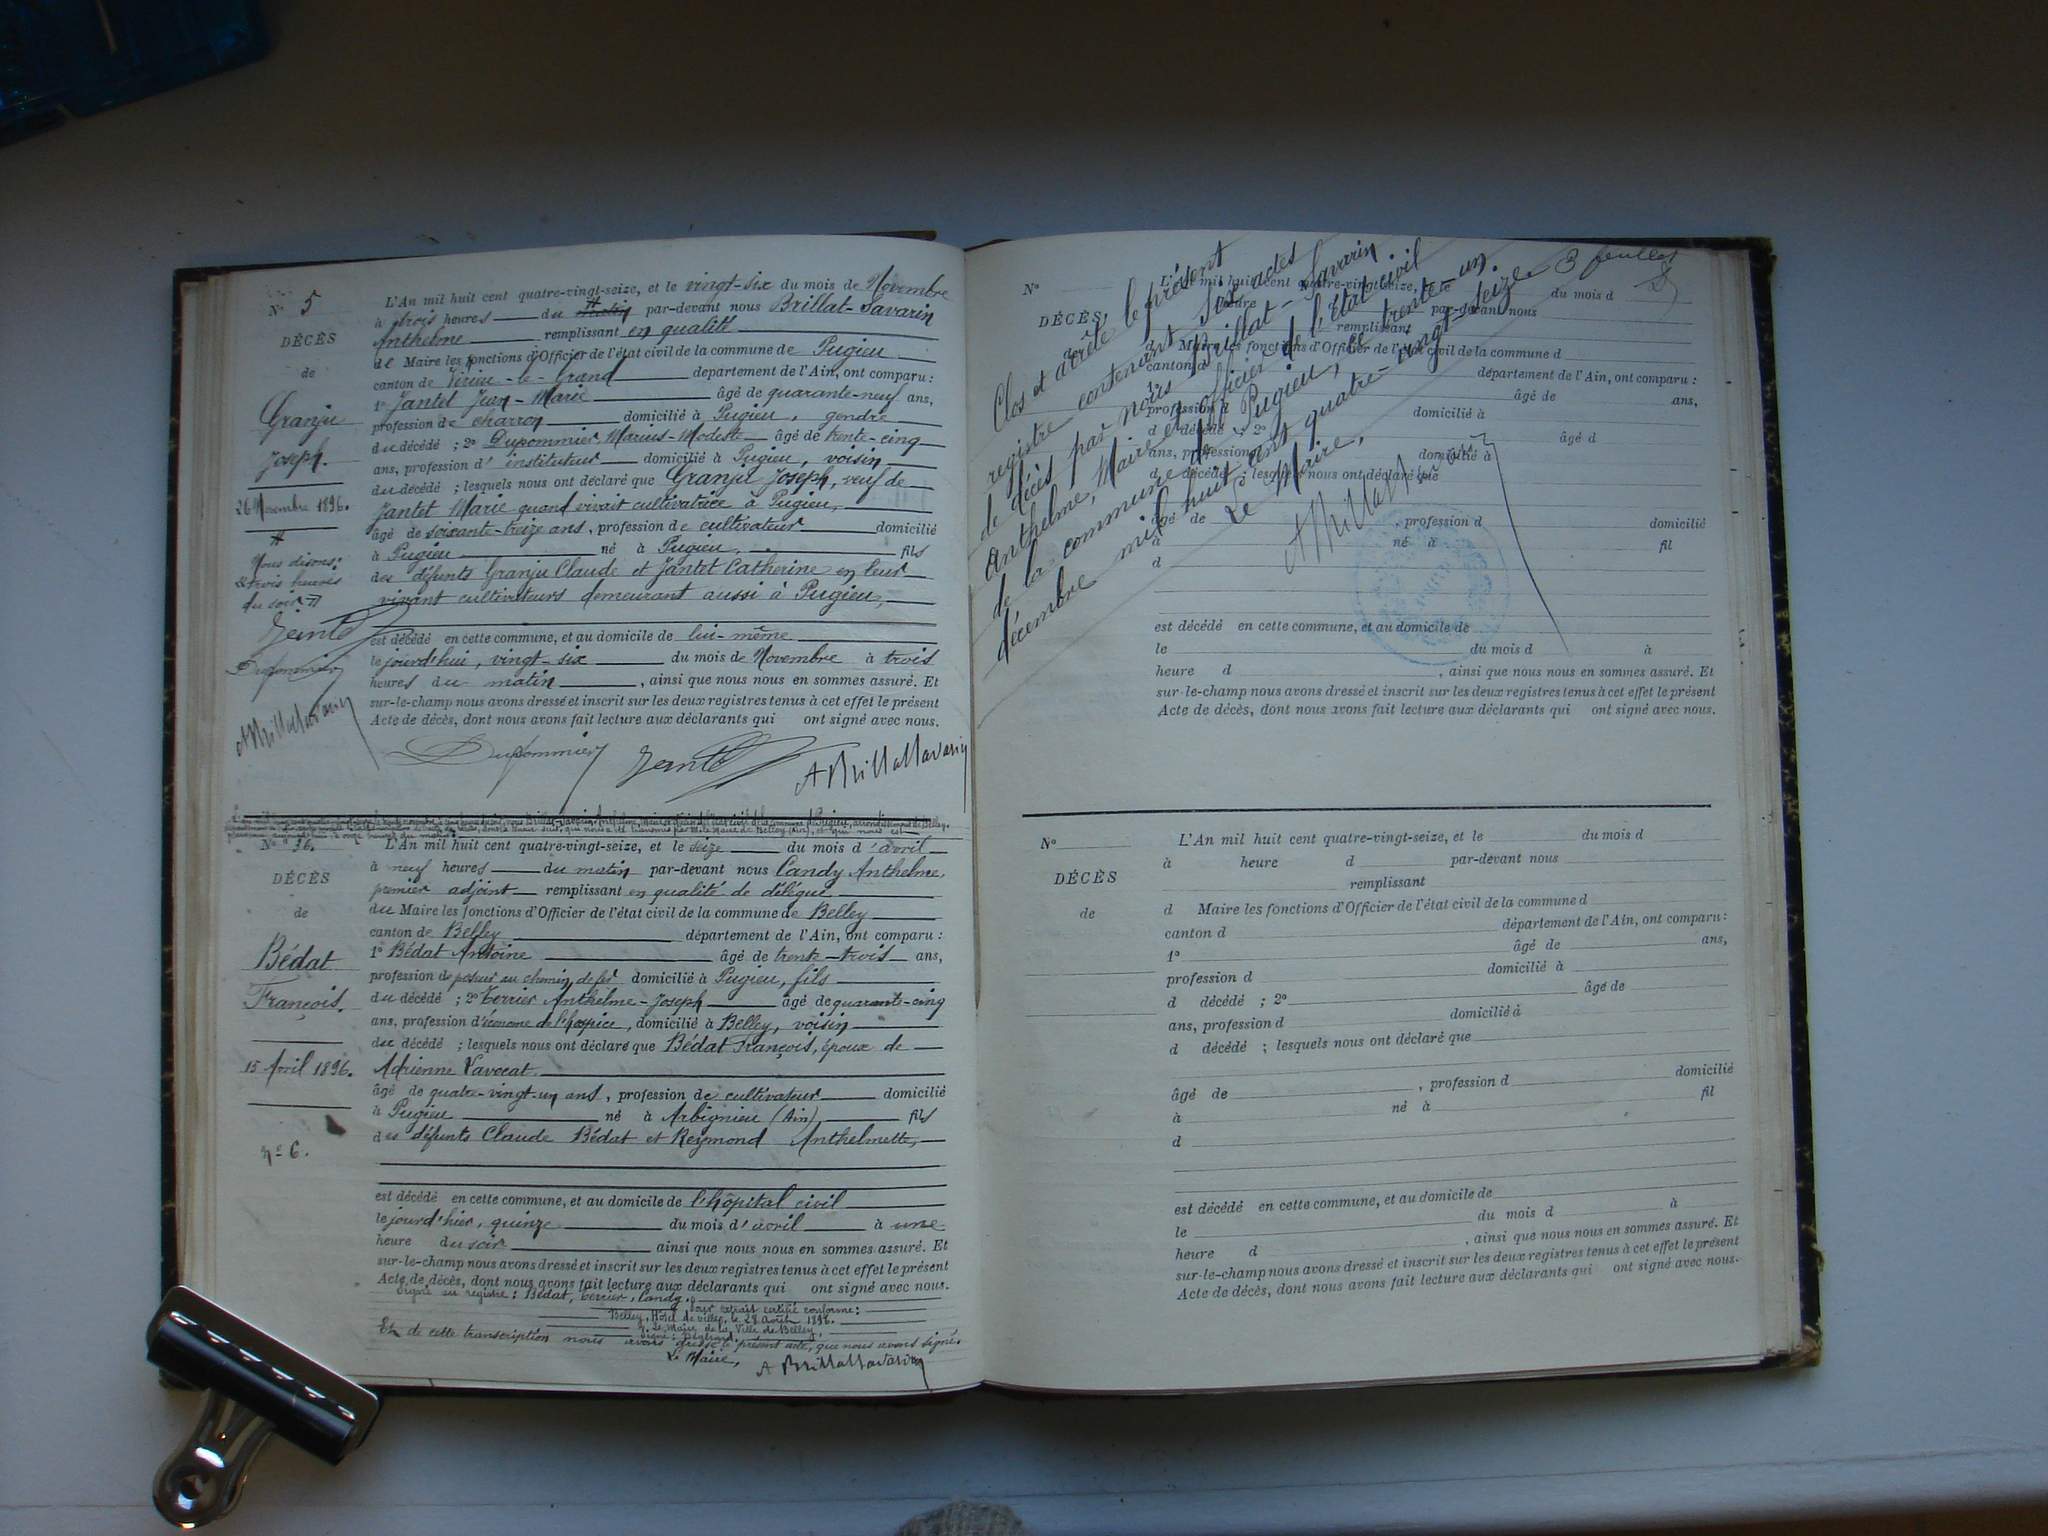 No 5
DÉCÈS
de
Granju
Joseph.
26 Novembre 1896.
Nous disons:
à trois heures
du soir
L'An mil huit cent quatre-vingt-seize, et le vingt-six du mois de Novembre
à trois heures du matin par-devant nous Brillat-Savarin
Anthelme remplissant en qualité
de Maire les fonctions d'Officier de l'état civil de la commune de Pugieu
canton de Virieu-le-Grand département de l'Ain, ont comparu :
1º Jantet Jean-Marie âgé de quarante-neuf ans,
profession de charron domicilié à Pugieu, gendre
du décédé ; 2º Dupommier Marius-Modeste âgé de trente-cinq
ans, profession d'instituteur domicilié à Pugieu, voisin
du décédé ; lesquels nous ont déclaré que Granju Joseph, veuf de
Jantet Marie quand vivait cultivatrice à Pugieu,
âgé de soixante-treize ans, profession de cultivateur domicilié
à Pugieu né à Pugieu, fils
des défunts Granju Claude et Jantet Catherine en leur
vivant cultivateurs demeurant aussi à Pugieu,
est décédé en cette commune, et au domicile de lui-même
le jourd'hui, vingt-six du mois de Novembre à trois
heures du matin, ainsi que nous nous en sommes assuré. Et
sur-le-champ nous avons dressé et inscrit sur les deux registres tenus à cet effet le présent
Acte de décès, dont nous avons fait lecture aux déclarants qui ont signé avec nous.
Dupommier Jantet ABrillatSavarin
No 36.
DÉCÈS
de
Bédat
François.
15 Avril 1896.
nº 6.
L'An mil huit cent quatre-vingt-seize, et le seize du mois d'avril
à neuf heures du matin par-devant nous Candy Anthelme,
premier adjoint remplissant en qualité de délégué
du Maire les fonctions d'Officier de l'état civil de la commune de Belley
canton de Belley département de l'Ain, ont comparu :
1º Bédat Antoine âgé de trente-trois ans,
profession de poseur au chemin de fer domicilié à Pugieu, fils
du décédé ; 2º Terrier Anthelme-Joseph âgé de quarante-cinq
ans, profession d'économe de l'hospice, domicilié à Belley, voisin
du décédé ; lesquels nous ont déclaré que Bédat François, époux de
Adrienne Vavocat
âgé de quatre-vingt-un ans, profession de cultivateur domicilié
à Pugieu né à Arbignieu (Ain) fils
des défunts Claude Bédat et Reymond Anthelmette,
est décédé en cette commune, et au domicile de l'hôpital civil
le jourd'hier, quinze du mois d'avril à une
heure du soir ainsi que nous nous en sommes assuré. Et
sur-le-champ nous avons dressé et inscrit sur les deux registres tenus à cet effet le présent
Acte de décès, dont nous avons fait lecture aux déclarants qui ont signé avec nous.
Signé au registre : Bédat, Terrier, Candy.
Pour extrait certifié conforme :
Belley, Hôtel de ville, le 28 Août 1896.
Le Maire de la Ville de Belley,
Et de cette transcription nous avons dressé le présent acte, que nous avons signé.
Le Maire, ABrillatSavarin
3 feuillet
Clos et arrêté le présent
registre contenant six actes
de décès par nous Brillat-Savarin
Anthelme, Maire et officier de l'État civil
de la commune de Pugieu, le trente-un
décembre mil huit cent quatre-vingt-seize
Le Maire,
ABrillatSavarin
No
DÉCÈS
de
L'An mil huit cent quatre-vingt-seize, et le du mois d
heure d par-devant nous
remplissant
d Maire les fonctions d'Officier de l'état civil de la commune d
canton d département de l'Ain, ont comparu :
1º âgé de ans,
profession d domicilié à
d décédé ; 2º âgé d
ans, profession domicilié à
d décédé ; lesquels nous ont déclaré que
âgé de , profession d domicilié
à né à fil
d
est décédé en cette commune, et au domicile de
le du mois d à
heure d , ainsi que nous nous en sommes assuré. Et
sur-le-champ nous avons dressé et inscrit sur les deux registres tenus à cet effet le présent
Acte de décès, dont nous avons fait lecture aux déclarants qui ont signé avec nous.
No
DÉCÈS
de
L'An mil huit cent quatre-vingt-seize, et le du mois d
à heure d par-devant nous
remplissant
d Maire les fonctions d'Officier de l'état civil de la commune d
canton d département de l'Ain, ont comparu :
1º âgé de ans,
profession d domicilié à
d décédé ; 2º âgé de
ans, profession d domicilié à
d décédé ; lesquels nous ont déclaré que
âgé de , profession d domicilié
à né à fil
d
est décédé en cette commune, et au domicile de
le du mois d à
heure d , ainsi que nous nous en sommes assuré. Et
sur-le-champ nous avons dressé et inscrit sur les deux registres tenus à cet effet le présent
Acte de décès, dont nous avons fait lecture aux déclarants qui ont signé avec nous.